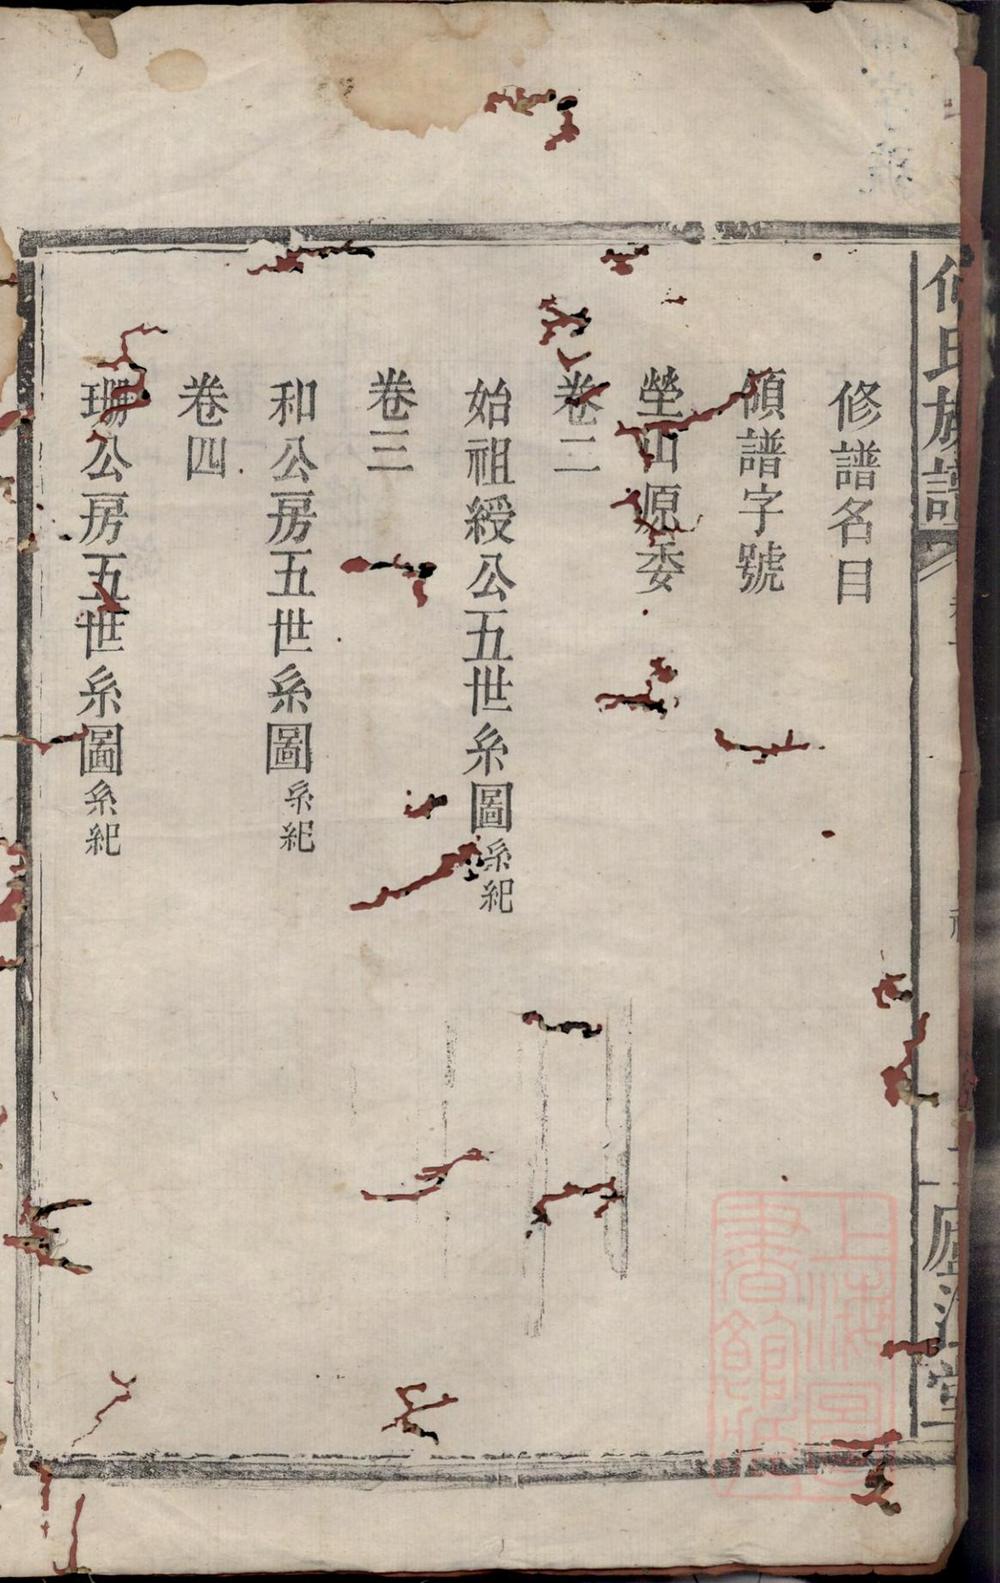 修譜名目
領譜字號
塋山原委
卷二
始祖綬公五世系圖系紀
卷三
和公房五世系圖系紀
卷四
珊公房五世系圖系紀
何氏族譜
廬江堂
上海圖書館藏